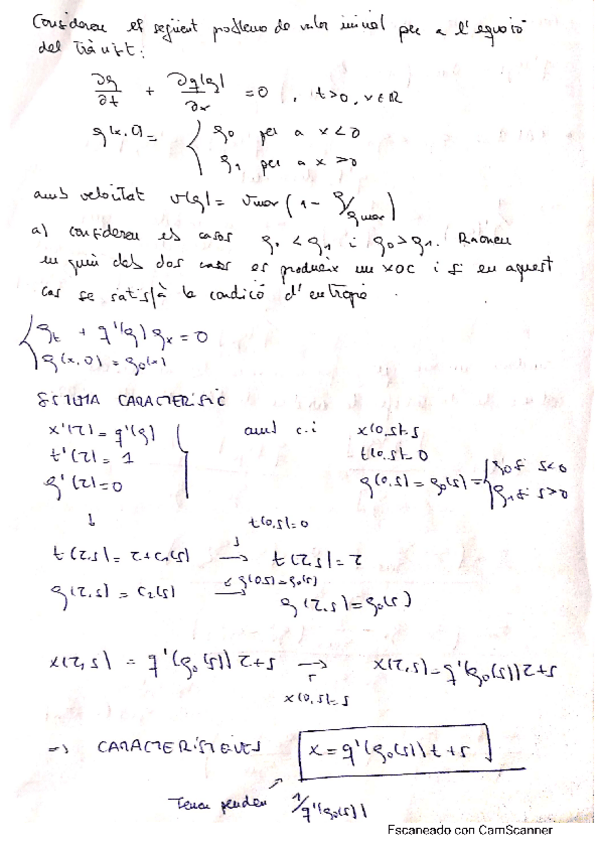 Considereu el següent problema de valor inicial per a l'equació
del Trànsit:
∂ρ/∂t + ∂q(ρ)/∂x = 0 , t>0, x∈ℝ
ρ(x,0) = { ρ0 per a x<0
ρ1 per a x>0
amb velocitat v(ρ) = vmax (1 - ρ/ρmax)
a) considereu els casos ρ0 < ρ1 i ρ0 > ρ1. Raoneu
en quin dels dos casos es produeix un xoc i si en aquest
cas se satisfà la condició d'entropia.
{ ρt + q'(ρ) ρx = 0
ρ(x,0) = ρ0(x)
SISTEMA CARACTERÍSTIC
x'(τ) = q'(ρ) amb c.i x(0,s) = s
t'(τ) = 1 t(0,s) = 0
ρ'(τ) = 0 ρ(0,s) = ρ0(s) = { ρ0 si s<0
ρ1 si s>0
↓ t(0,s) = 0
t(τ,s) = τ + c1(s) → t(τ,s) = τ
ρ(0,s) = ρ0(s)
ρ(τ,s) = c2(s) → ρ(τ,s) = ρ0(s)
x(τ,s) = q'(ρ0(s)) τ + s → x(τ,s) = q'(ρ0(s)) τ + s
x(0,s) = s
=> CARACTERÍSTIQUES x = q'(ρ0(s)) t + s
Tenen pendent 1/q'(ρ0(s))
Escaneado con CamScanner